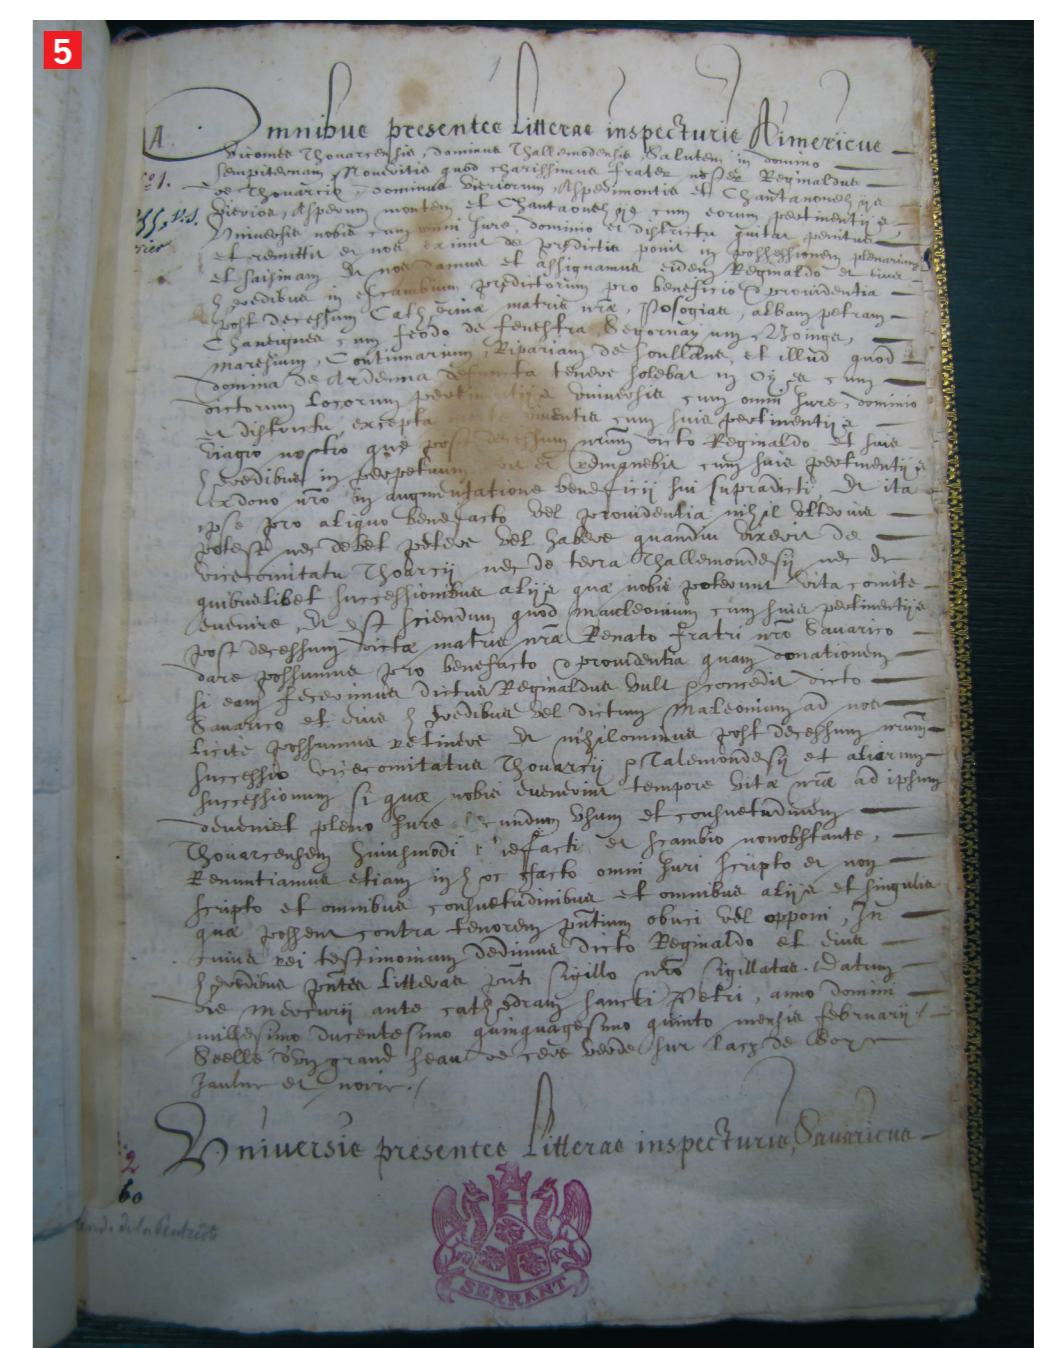 5
1
A
Omnibus presentes litteras inspecturis Aimericus
Vicomes Thouarcensis, dominus Thallemodensis, Salutem in domino
sempiternam, Noveritis quod charissimus frater noster Reginaldus
de Thouarcio dominus Vieriorum, Asperimontis et
co 1.
Vierios, Asperum montem et cum eorum pertinentiis
Universis nobis cum omni jure, dominio et districtu quitat penitus
et remittit et nos in de predictis ponit in possessionem plenariam
et saisinam Et nos damus et assignamus eidem Reginaldo et eius
heredibus in escambium predictorum pro beneficio & providentia
post decessum Catherinæ matris nræ, albam petram
cum feodo de fenestra
et illud quod
domina de Ardenna defuncta tenere solebat in cum
dictorum locorum pertinentiis universis cum omni jure, dominio
et districtu, excepta cum suis pertinentiis
viagio nostro quæ post decessum nrum dicto Reginaldo et suis
heredibus in perpetuum et remanebit cum suis pertinentiis
dono nro in augmentatione beneficii sui supradicti, Et ita
ipse pro aliquo benefacto vel providentia nihil ulterius
potest nec debet petere vel habere quandiu vixerit de
vicecomitatu Thoarcii nec de terra Thallemondesii nec de
quibuslibet successionibus aliis quæ nobis poterunt vita comite
evenire, Et est sciendum quod Mauleonium cum suis pertinentiis
post decessum dictæ matris nræ fratri nro Savarico
dare possumus pro benefacto & providentia quam donationem
si eam fecerimus dictus Reginaldus vult & concedit dicto
Savarico et eius heredibus vel dictum Maleonium ad nos
licite possumus retinere Et nihilominus post decessum nrum
successio vicecomitatus Thouarcii & Talemondesii et aliarum
successionum si quæ nobis evenerint tempore vitæ nræ ad ipsum
deveniet pleno jure secundum usum et consuetudinem
Thouarcensem huiusmodi et scambio nonobstante,
Renuntiamus etiam in hoc facto omni juri scripto et non
scripto et omnibus consuetudinibus et omnibus aliis et singulis
quæ possent contra tenorem pntium obiici vel opponi, In
cuius rei testimonium dedimus dicto Reginaldo et eius
heredibus pntes litteras pnti sigillo nro sigillatas. Datum
die Mercurii ante cathedram sancti Petri, anno domini
millesimo ducentesimo quinquagesimo quinto mensis februarii
Seelle d'un grand seau de cere verde sur lacz de soye
Jaulne et noire
Universis presentes litteras inspecturis, Savaricus
2
60
SERRANT